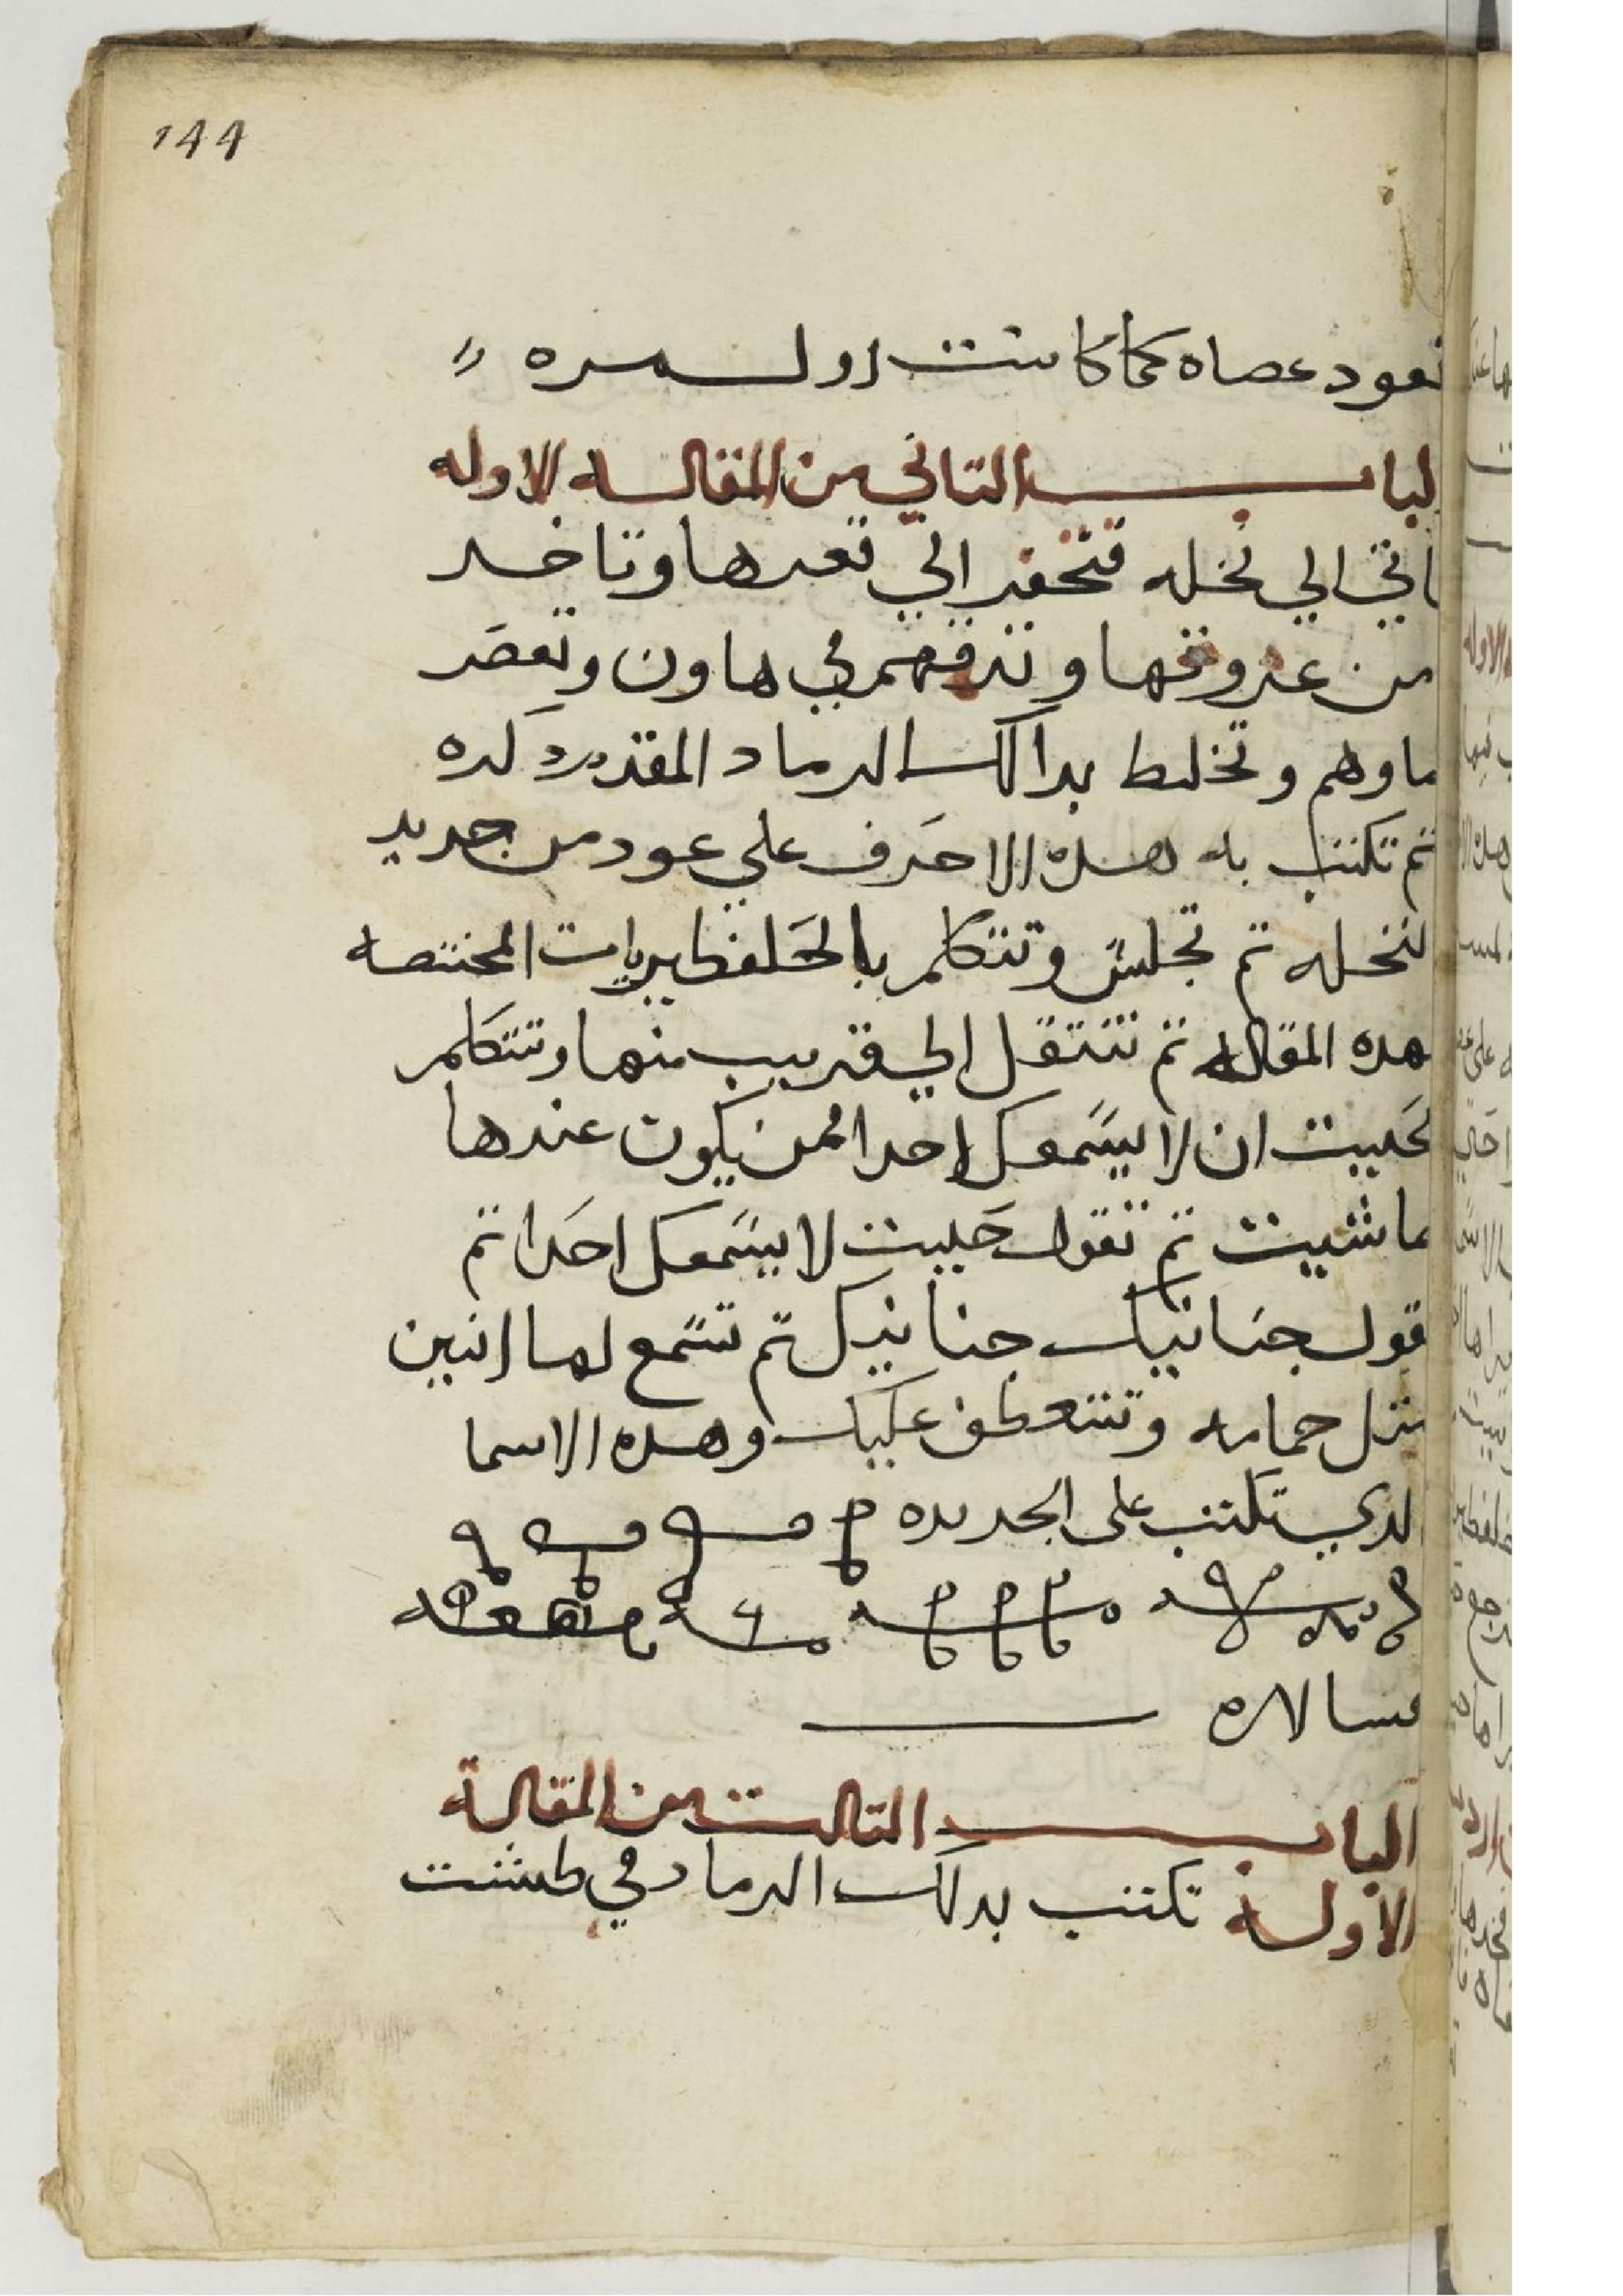 144
تعود عصاه كما كانت اول مره
الباب التاني من المقاله الاوله
تاتي الي نخله فتحفر الي تعرها وتاخد
من عروقها وتدقهم في هاون وتعصر
ماوهم وتخلط بدالك الرماد المقدم دكره
تم تكتب به هده الاحرف علي عود من جريد
النخله تم تجلس وتتكلم بالحلفطيريات المختصه
هده المقاله تم تنتقل الي قريب منها وتتكلم
بحيت ان لا يسمعك احدا ممن يكون عندها
ما شيت تم تقول حيت لا يسمعك احدا تم
تقول تم تسمع لها انين
متل حمامه وتتعطف عليك وهده الاسما
الدي تكتب على الجريده
الباب التالت من المقالة
الاوله تكتب بدلك الرماد في طشت